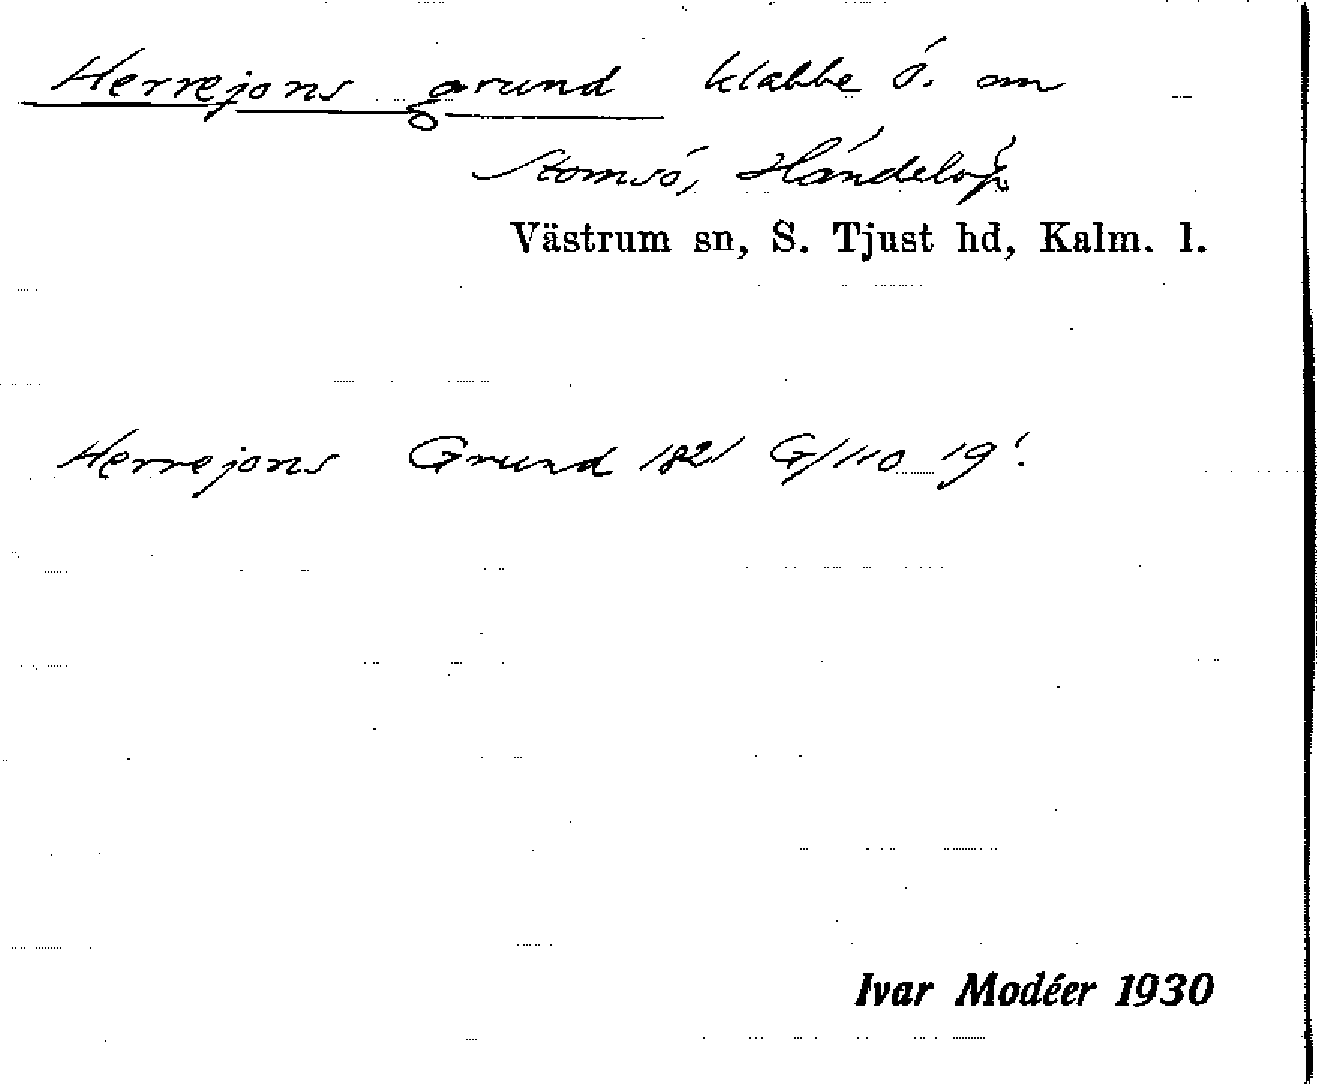 Herrejons grund klabbe ö. om
Stomsö, Händelöp.
Västrum sn, S. Tjust hd, Kalm. l.
Herrejons Grund 1821 G/110 19'.
Ivar Modéer 1930